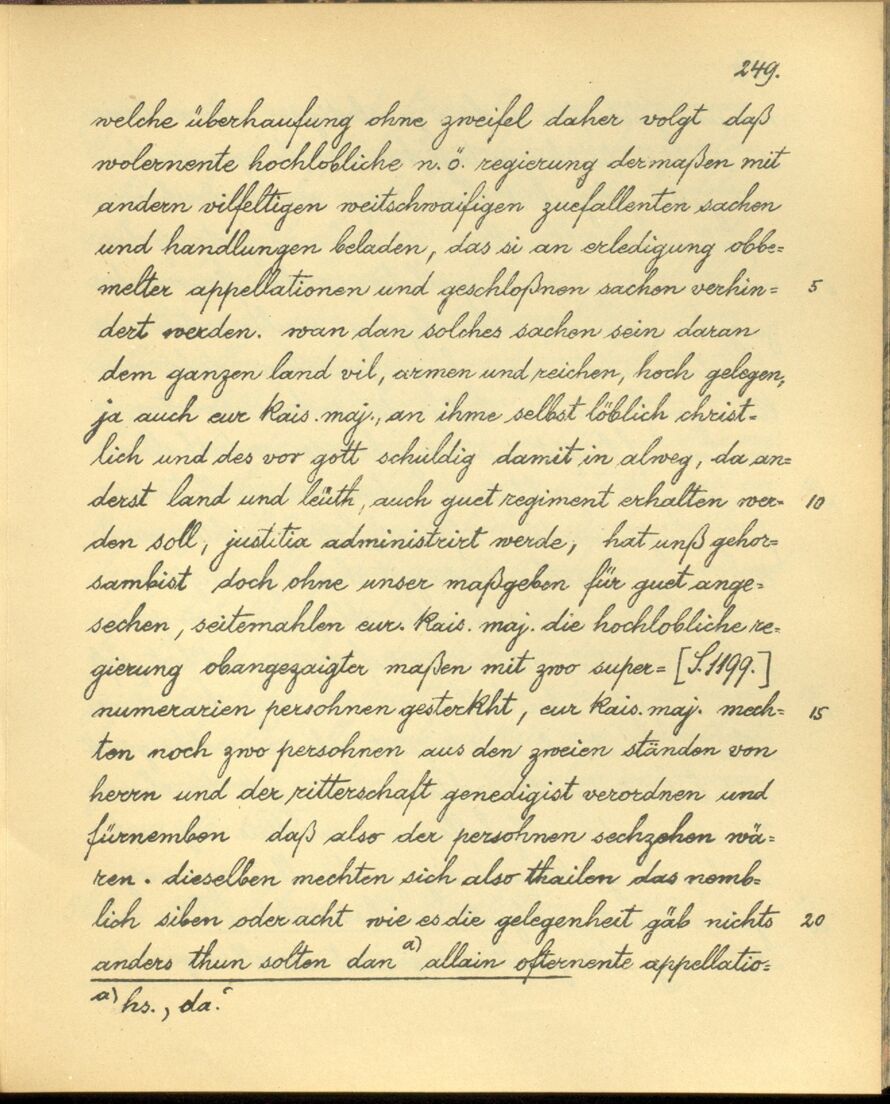 249.
welche überhaufung ohne zweifel daher volgt daß
wolernente hochlobliche n. ö. regierung dermaßen mit
andern vilfeltigen weitschwaifigen zuefallenten sachen
und handlungen beladen, das si an erledigung obbe=
melter appellationen und geschloßnen sachen verhin= 5
dert werden. wan dan solches sachen sein daran
dem ganzen land vil, armen und reichen, hoch gelegen,
ja auch eur kais. maj., an ihme selbst löblich christ=
lich und des vor gott schuldig damit in alweg, da an=
derst land und leüth, auch guet regiment erhalten wer= 10
den soll, justitia administrirt werde, hat unß gehor=
sambist doch ohne unser maßgeben für guet ange=
sechen, seitemahlen eur. kais. maj. die hochlobliche re=
gierung obangezaigter maßen mit zwo super= [S. 1199.]
numerarien persohnen gesterkht, eur kais. maj. mech= 15
ten noch zwo persohnen aus den zweien ständen von
herrn und der ritterschaft genedigist verordnen und
fürnemben daß also der persohnen sechzehen wä=
ren. dieselben mechten sich also thailen das nemb=
lich siben oder acht wie es die gelegenheit gäb nichts 20
anders thun solten dan a) allain ofternente appellatio=
a) hs., da.